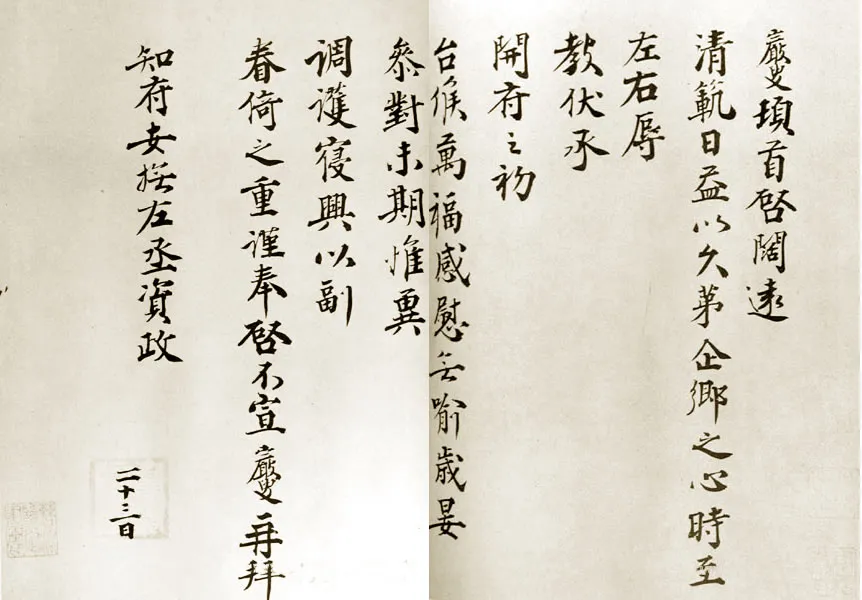 巖叟頓首啓闊遠
清範日益以久第企鄉之心時至
左右辱
教伏承
開府之初
台候萬福感慰无喻歲晏
叅對未期惟冀
調護寢興以副
眷倚之重謹奉啓不宣巖叟再拜
知府安撫左丞資政
二十三日